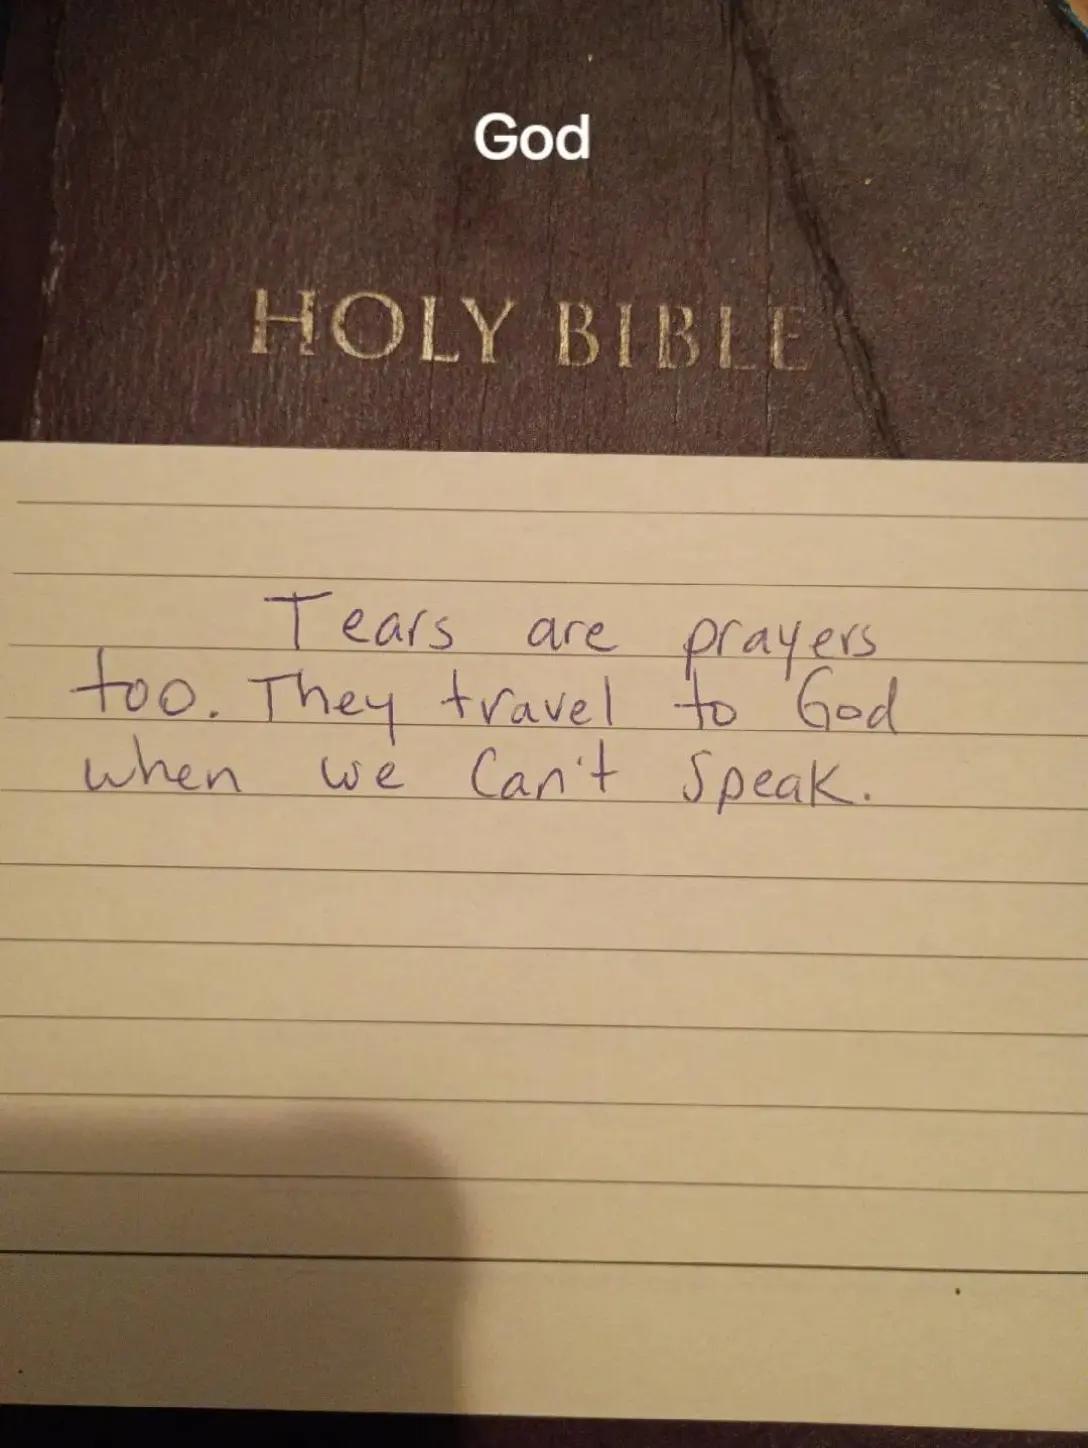 God
HOLY BIBLE
Tears are prayers
too. They travel to God
when we Can't Speak.